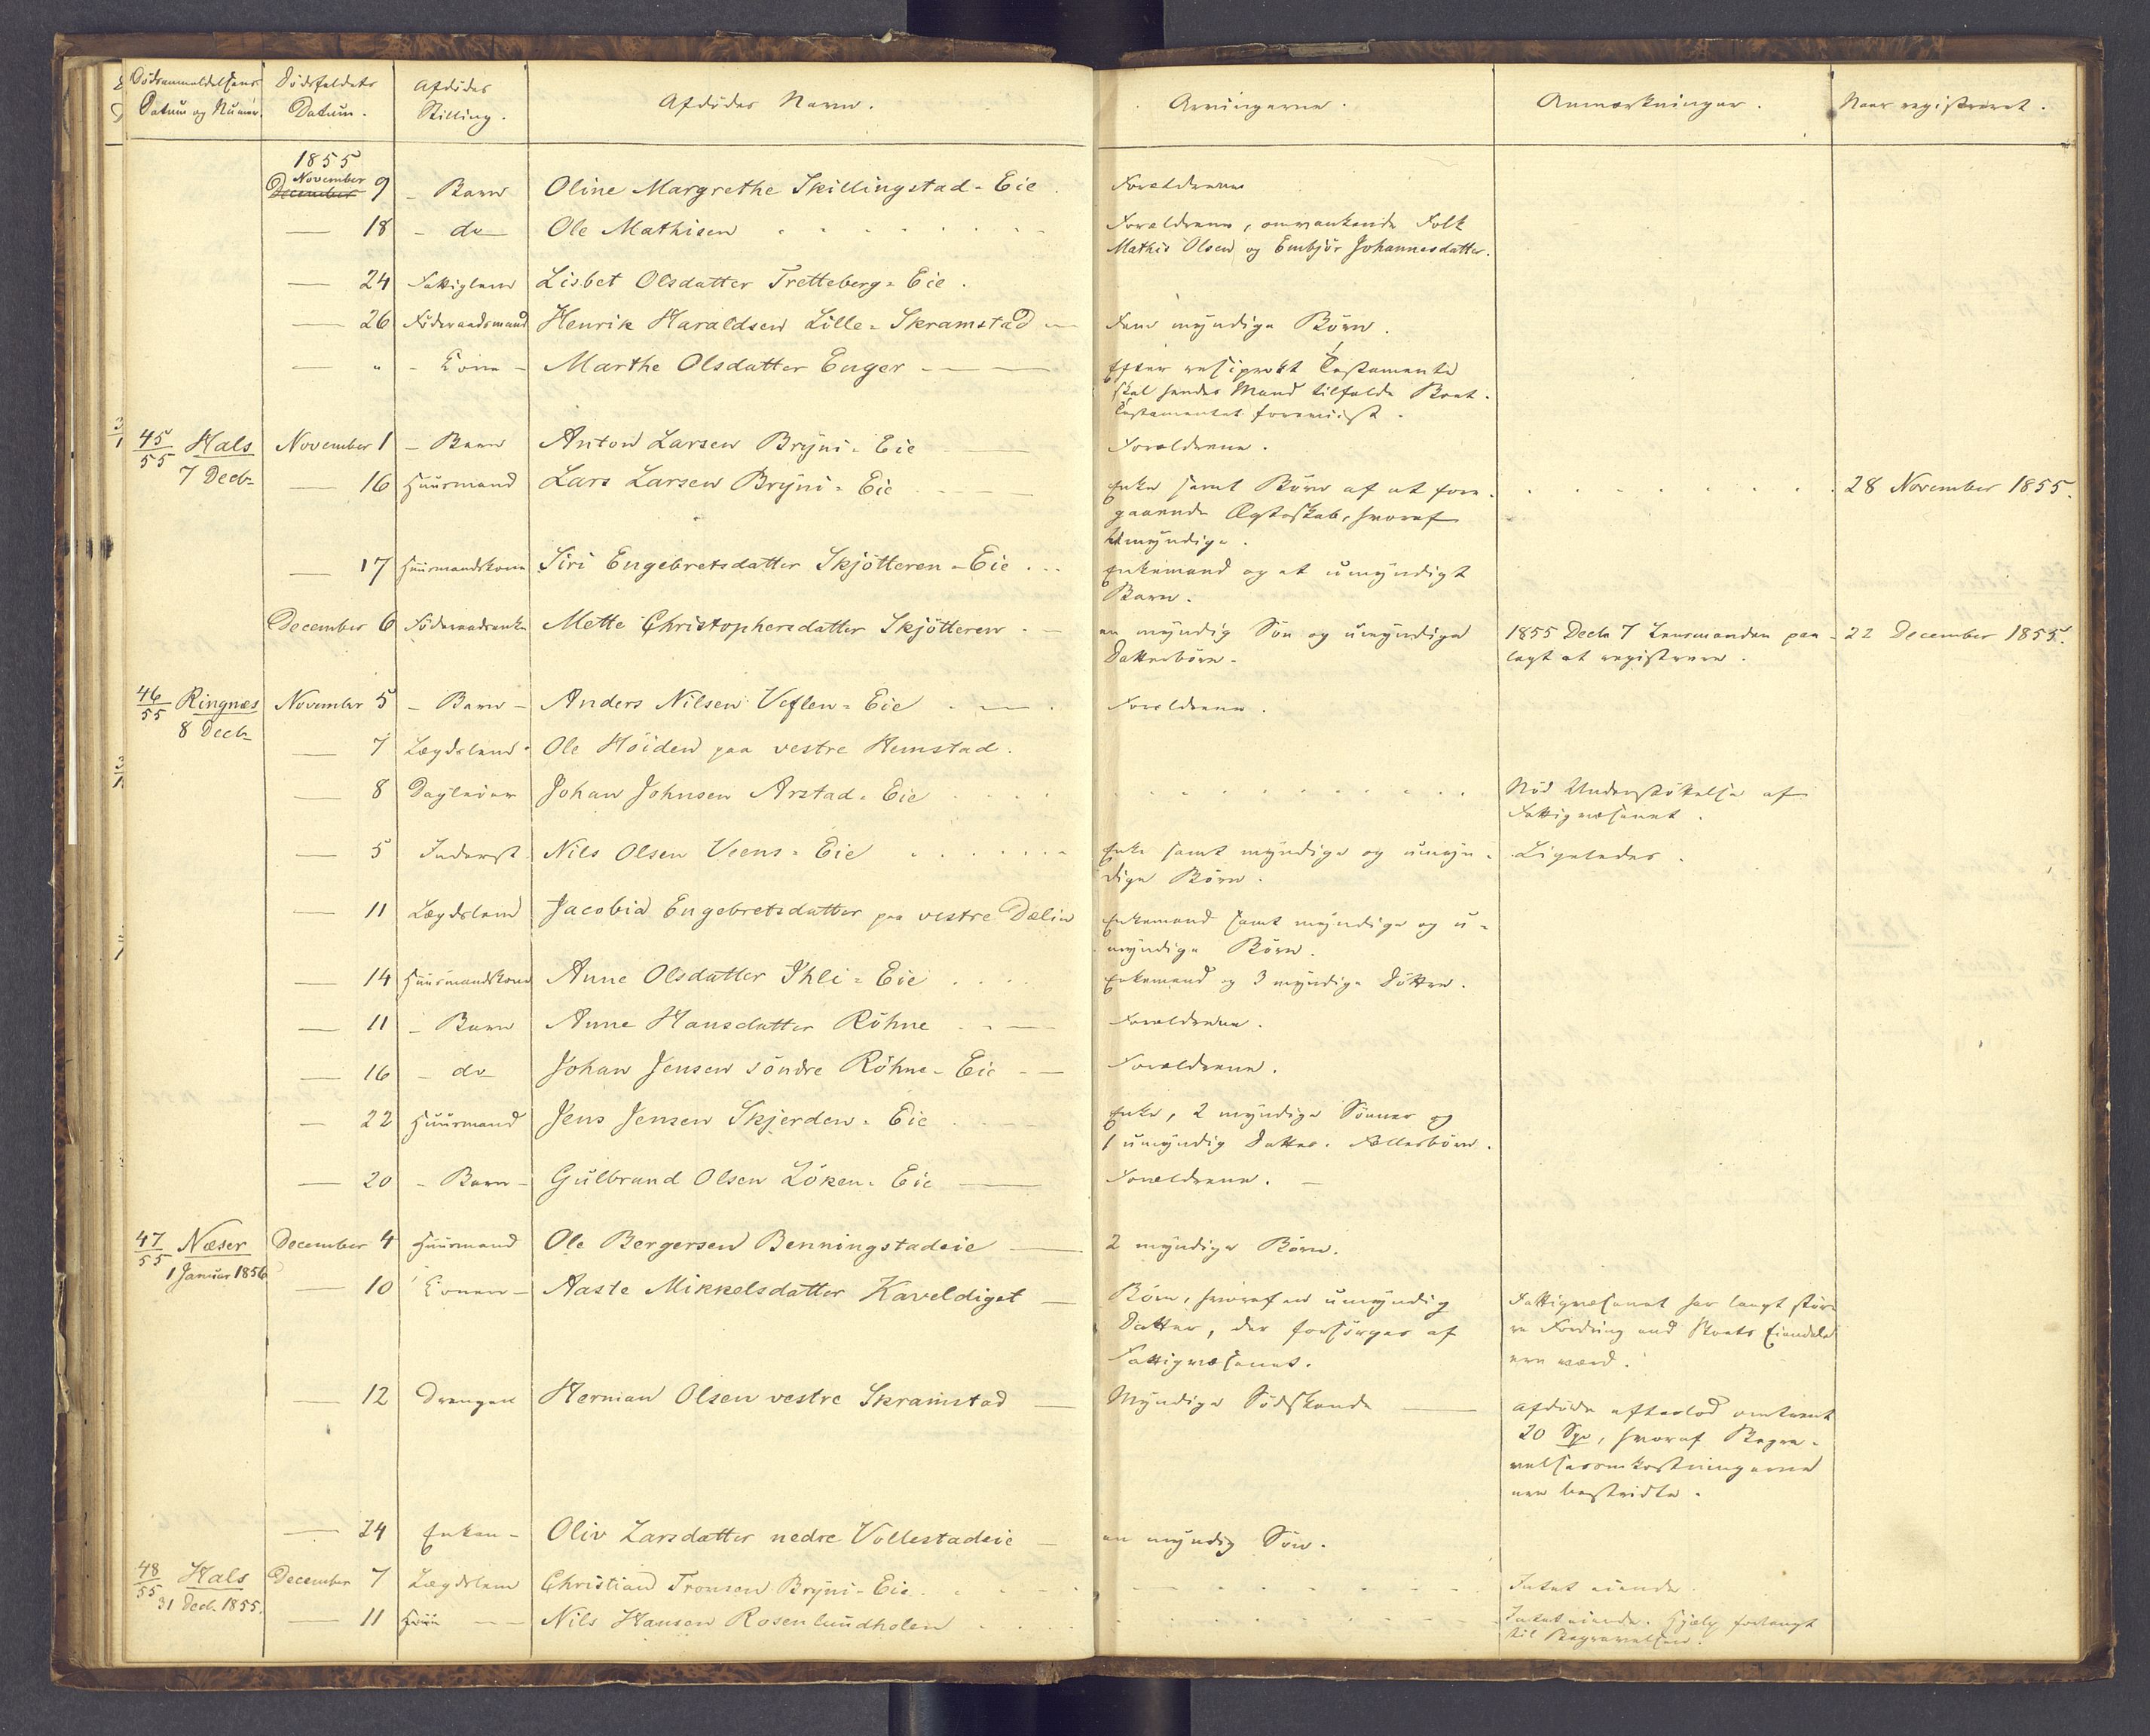 Dødsanmeldelsens Datum og Numer. Dødsfaldets Datum. Afdødes Stilling. Afdødes Navn. Arvingerne. Anmærkninger. Naar registreret.
1855
November
December 9 - Barn Oline Margrethe Skillingstad-Eie. Forældrene
— 18 - do Ole Mathisen Forældrene, omvankende Folk
Mathis Olsen og Embjör Johannesdatter.
— 24 Fattiglem Lisbet Olsdatter Tretteberg-Eie.
— 26 Föderaadsmand Henrik Haraldsen Lille-Skramstad Fem myndige Börn.
— " - Kone - Marthe Olsdatter Enger Efter resiprokt Testamente
skal hendes Mand tilfalde Boet.
Testamentet foreviist.
45/55 Hals November 1 - Barn Anton Larsen Bryni-Eie Forældrene.
7 Decbr — 16 Huusmand Lars Larsen Bryni-Eie Enke samt Börn af et fore- 28 November 1855.
gaaende Ægteskab, hvoraf
umyndige.
— 17 Huusmandskone Siri Engebretsdatter Skjötteren-Eie Enkemand og et umyndigt
Barn.
December 6 Föderaadsenke Mette Christophersdatter Skjötteren en myndig Sön og umyndige 1855 Decbr 7 Lensmanden paa- 22 December 1855.
Datterbörn. lagt at registrere.
46/55 Ringnæs November 5 - Barn - Anders Nilsen Veflen-Eie Forældrene.
8 Decbr
— 7 Lægdslem Ole Höiden paa vestre Hemstad.
— 8 Dagleier Johan Johnsen Arstad-Eie Nöd Understöttelse af
Fattigvæsenet.
— 5 Inderst Nils Olsen Veens-Eie Enke samt myndige og umyn- Ligeledes.
dige Börn.
— 11 Lægdslem Jacobia Engebretsdatter paa vestre Dælin Enkemand samt myndige og u-
myndige Börn.
— 14 Huusmandskone Anne Olsdatter Ihli-Eie Enkemand og 3 myndige Döttre.
— 11 - Barn Anne Hansdatter Röhne Forældrene.
— 16 - do Johan Jensen söndre Röhne-Eie Forældrene.
— 22 Huusmand Jens Jensen Skjerden-Eie Enke, 2 myndige Sönner og
1 umyndig Datter. Fællesbörn.
— 20 - Barn - Gulbrand Olsen Löken-Eie Forældrene.
47/55 Næser December 4 Huusmand Ole Bergersen Benningstadeie 2 myndige Börn.
1 Januar 1856
— 10 Konen - Aaste Mikkelsdatter Kaveldiget Börn, hvoraf en umyndig Fattigvæsenet har langt störr
Datter, der forsörges af re Fordring end Boets Eiendele
Fattigvæsenet. ere værd.
— 12 Drengen Herman Olsen vestre Skramstad Myndige Södskende Afdöde efterlod omtrent
20 Spd, hvoraf Begra-
velsesomkostningerne
ere bestridte.
— 24 Enken - Oliv Larsdatter nedre Vollestadeie en myndig Sön.
48/55 Hals December 7 Lægdslem Christian Tronsen Bryni-Eie Intet eiende.
31 Decbr 1855.
— 11 Nils Hansen Rosenlundholen Intet eiende. Hjælp forlangt
til Begravelsen.